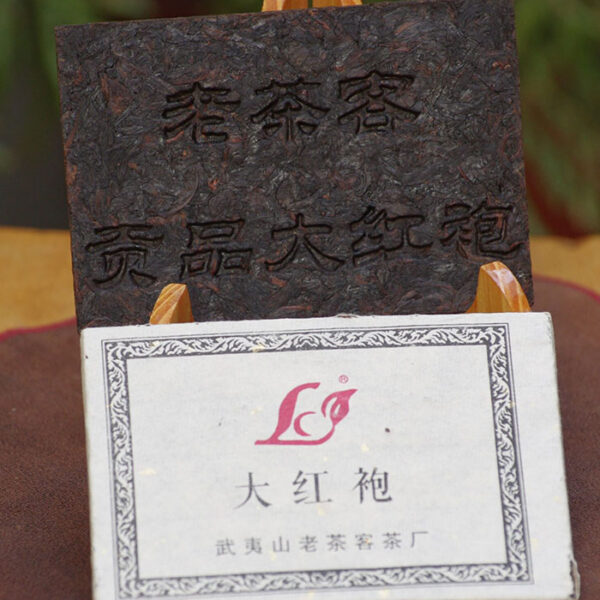 老茶客
贡品大红袍
®
大红袍
武夷山老茶客茶厂